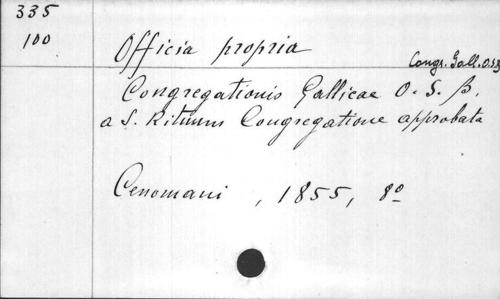 335
100
Officia propria
Congr. Gall. O.S.B.
Congregationis Gallicae O. S. B.
a S. Rituum Congregatione approbata
Cenomani , 1855, 8º